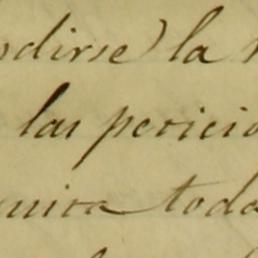 ndirse) la
las pericio
mira toda